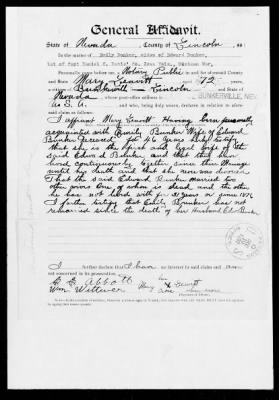 General Affidavit.
State of Nevada County of Lincoln, ss:
In the matter of Emily Bunker, widow of Edward Bunker,
1st of Capt Daniel C. Davis' Co. Iowa Vols, Mexican War,
Personally came before me, a Notary Public in and for aforesaid County
and State Mary Leavitt aged 72 years,
a citizen of Bunkerville Lincoln and State of
Nevada whose post-office address is BUNKERVILLE, NEV.
U. S. A. and who, being duly sworn, declares in relation to aforesaid
claim as follows:
I affiant Mary Leavitt Having been personally
acquainted with Emily Bunker Wife of Edward
Bunker deceased for 46 years and testify
that she is the legal wife of the
said Edward Bunker and that they have
lived continuously together since their marriage
until his death and that she was never divorced
That the said Edward Bunker married two
other wives one of whom is dead and the other
he has not lived with for 21 years or since 1878
I further testify that Emily Bunker has not
remarried since the death of her Husband Ed. Bunker
I further declare that I have no interest in said claim and am
not concerned in its prosecution.
Abbott
Wm. Wittwer
Mary X Leavitt
her mark